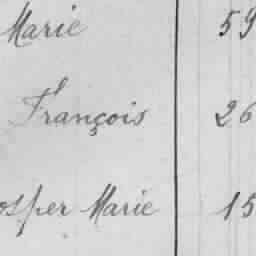 Marie 59
François 26
osper Marie 15